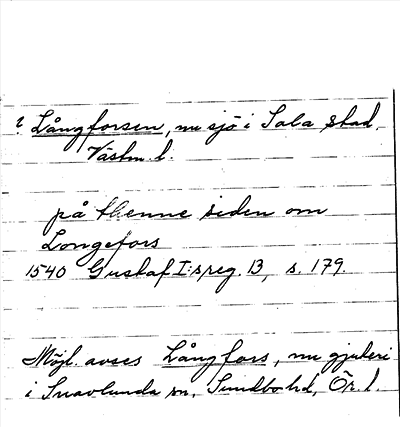 ? Långforsen, nu sjö i Sala stad.
Västm. l.
på thenne siden om
Longefors
1540 Gustaf I:s reg. 13, s. 179.
Möjl. avses Långfors, nu gjuteri
i Snavlunda sn, Sundbo hd, Ör. l.